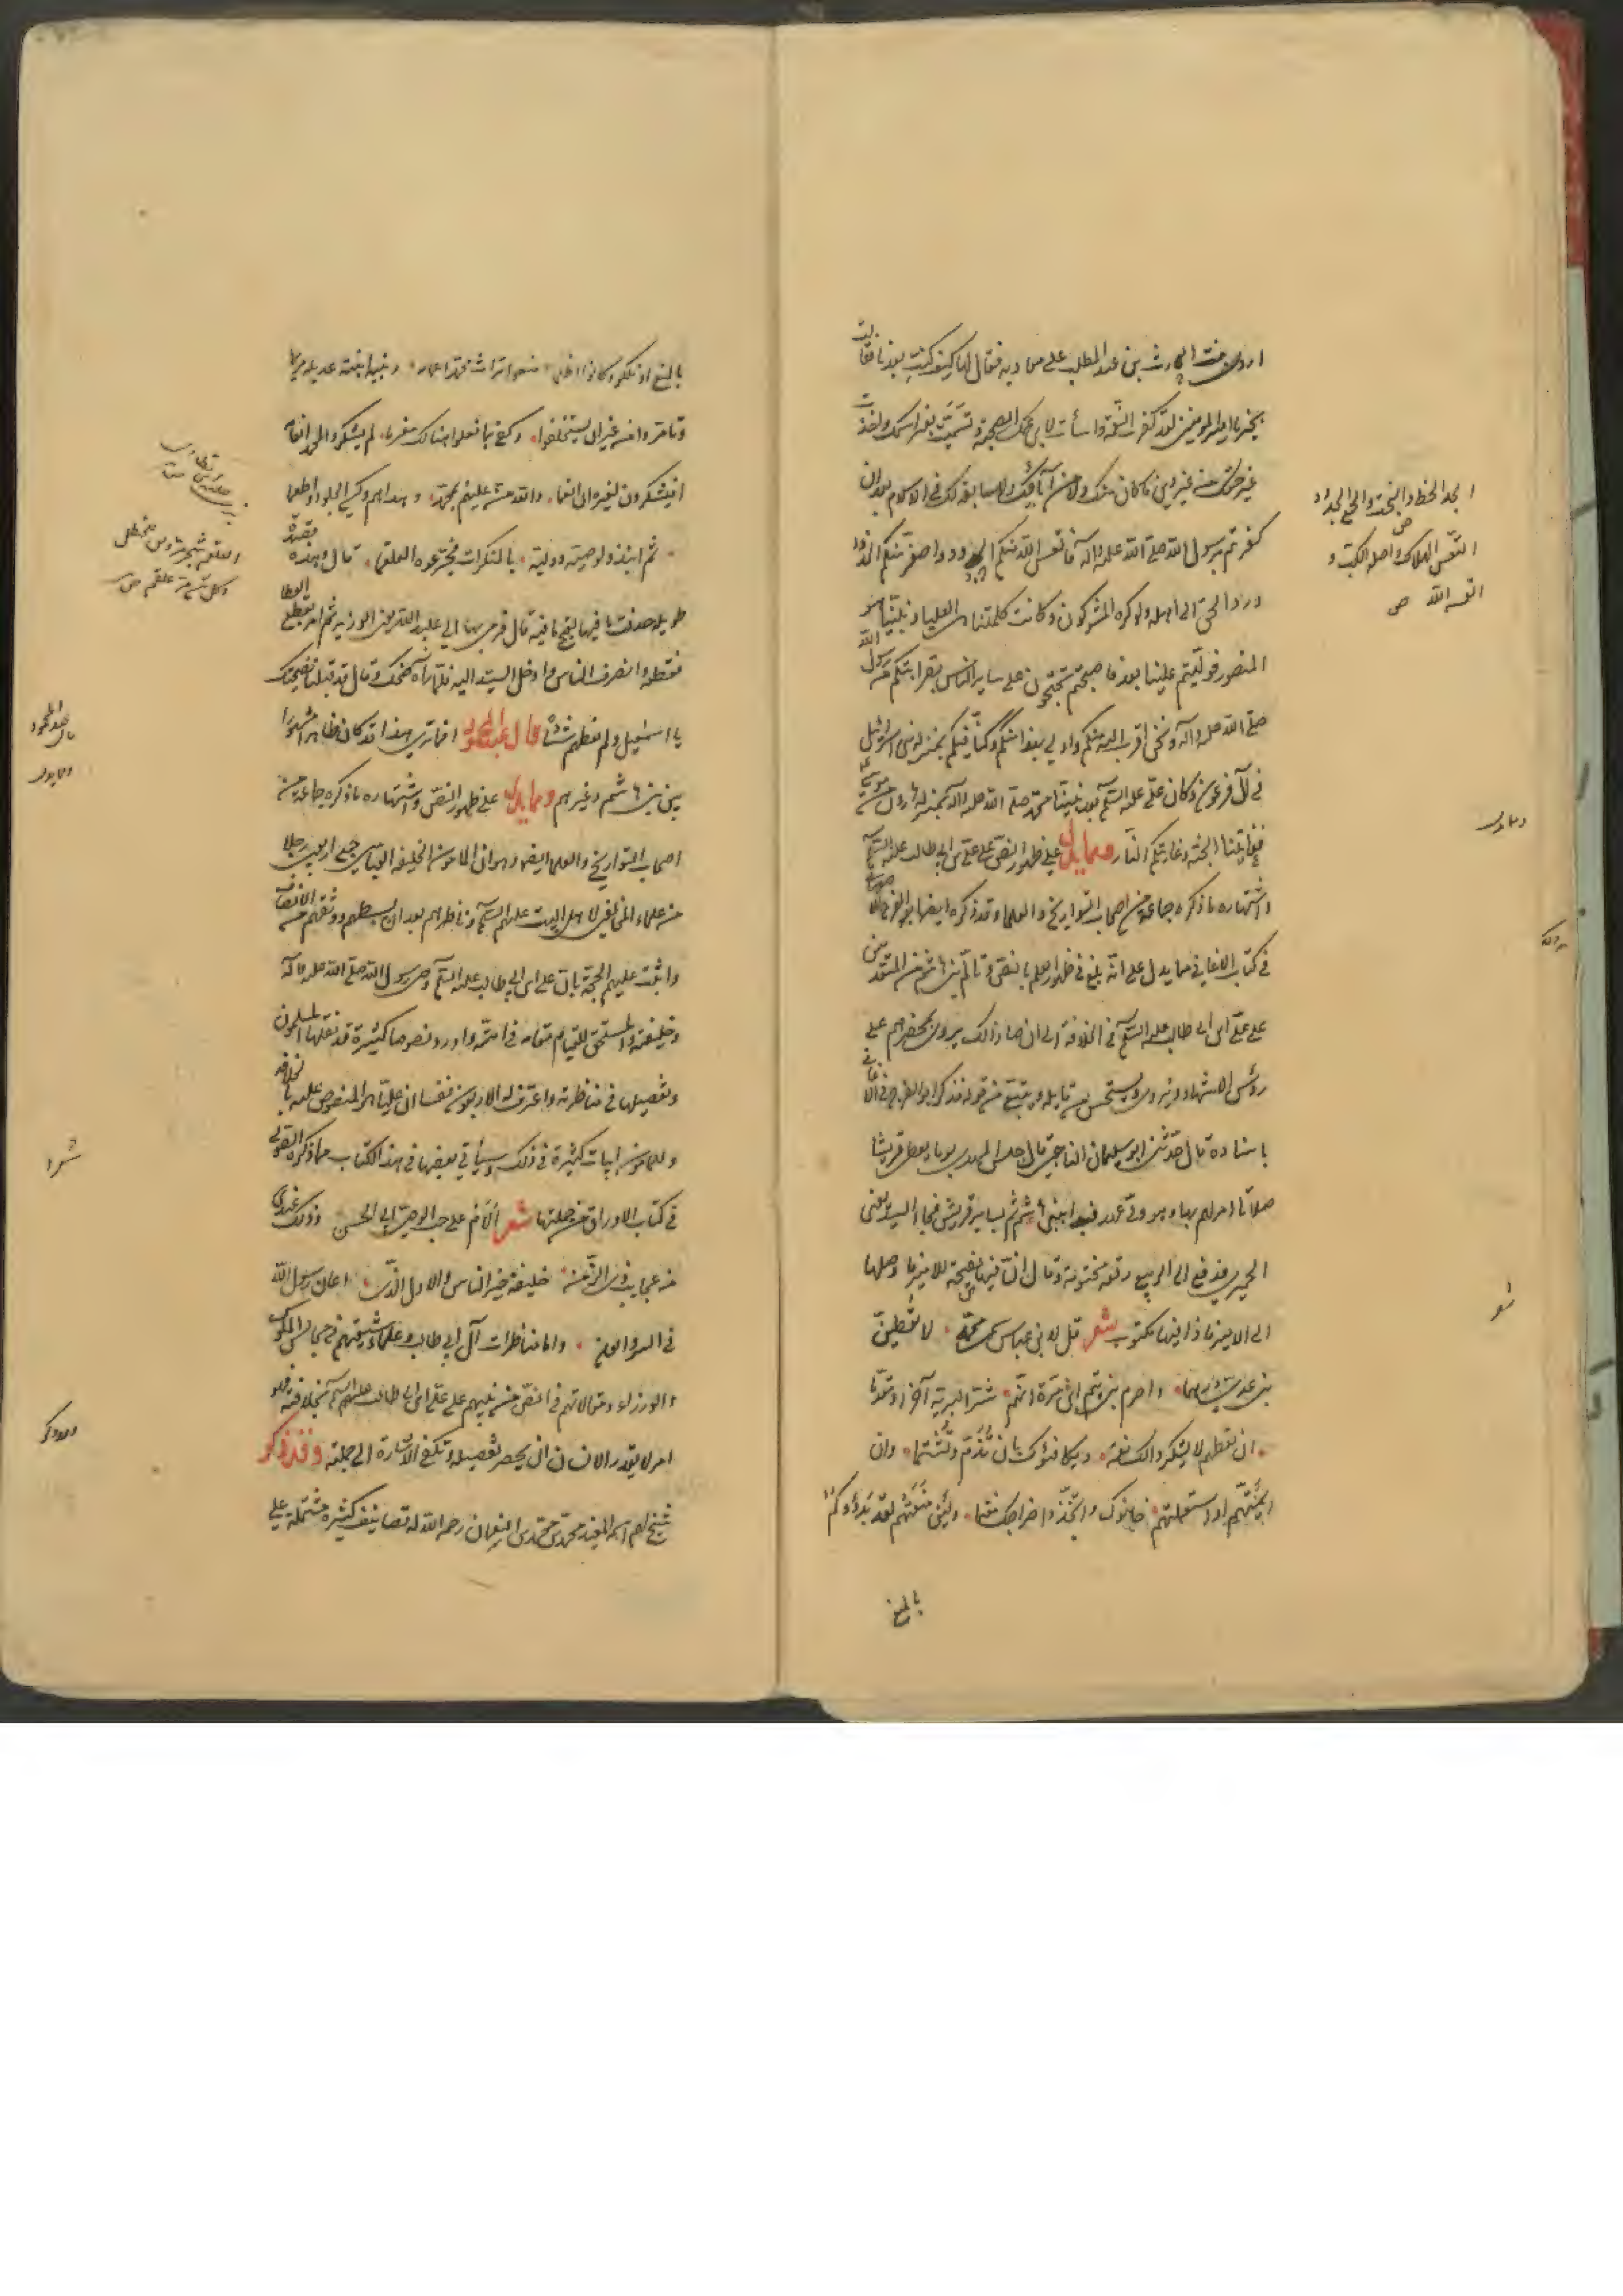 اروى بنت الحارث بن عبد المطلب على معاوية فقال لها كيف كنت بعدنا فقالت
بخير يا امير المؤمنين لقد كفرت النعمة واسأت لابن عمك الصحبة وتسميت بغير اسمك واخذت
غير حقك من غير دين كان منك ولا من آبائك ولا سابقة لك في الاسلام بعد ان
كفرتم برسول الله صلى الله عليه وآله فاتعس الله منكم الجدود واصعر منكم الخدود
ورد الحق الى اهله ولو كره المشركون وكانت كلمتنا هي العليا ونبينا هو
المنصور فوليتم علينا بعده فاصبحتم تحتجون على ساير الناس بقرابتكم من رسول الله
صلى الله عليه وآله ونحن اقرب اليه منكم واولى بهذا منكم وكنا فيكم بمنزلة بني اسرائيل
في آل فرعون وكان علي عليه السلم بعد نبينا محمد صلى الله عليه وآله بمنزلة هرون من موسى
فغايتنا الجنة وغايتكم النار ومما يدل على ظهور النص على علي بن ابي طالب عليه السلم
واشتهاره ما ذكره جماعة من اصحاب التواريخ والعلماء وقد ذكره ايضا ابو الفرج
في كتاب الاغاني مما يدل على انه بلغ في ظهور العلم بالنص وتألم بني هاشم من المتقدمين
على علي بن ابي طالب عليه السلم في الخلافة الى ان صار ذلك يروى بمحضرهم على
رؤس الاشهاد ويروى ويستحسن من قايله ويتبع من قوله فذكر ابو الفرج في الاغاني
باسناده قال حدثني ابو سليمان الناجي قال جلس المهدي يوما يعطي قريشا
صلاتا امر لهم بها وهو ولي عهد فبدا ببني هاشم ثم بساير قريش فجاء السيد يعني
الحميري فدفع الى الربيع رقعة مختومة وقال ان فيها نصيحة للامير فاوصلها
الى الامير فاذا فيها مكتوب شعر قل لابن عباس سمي محمد لا تعطين
بني عدي درهما واحرم بني تيم بن مرة انهم شر البرية آخرا ومقدما
ان تعطهم لا يشكروا لك نعمة ويكافئوك بان تذم وتشتما وان
ائتمنتهم او استعملتهم خانوك واتخذوا خراجك مغنما ولئن منعتهم لقد بدؤوكم
بالمنع
الجد الحظ والبخت والجمع الجدود
ص
التعس الهلاك واصله الكب و
اتعسه الله ص
ومما يدل
شعر
بالمنع اذ ملكوا وكانوا اظلما منعوا تراث محمد اعمامه وبنيه وابنته عديلة مريما
وتامروا من غير ان يستخلفوا وكفى بما فعلوا هنالك مغرما لم يشكروا لمحمد انعامه
افيشكرون لغيره ان انعما والله من عليهم بمحمد وهداهم وكسى الجلود واطعما
ثم انبذوا لوصيه ووليه بالمنكرات فجرعوه العلقما قال وهذه قصيدة
طويلة حذفت باقيها لقبح ما فيه قال فرمى بها الى عبيد الله يعني الوزير ثم امر بقطع العطا
فقطعه وانصرف الناس وادخل السيد اليه فلما رآه ضحك وقال قد قبلنا نصيحتك
يا اسمعيل ولم نعطهم شيئا قال عبد المحمود افما ترى هذا قد كان ظاهرا مشهورا
بين بني هاشم وغيرهم ومما يدل على ظهور النص واشتهاره ما ذكره جماعة من
اصحاب التواريخ والعلماء ايضا وهو ان المامون الخليفة العباسي جمع اربعين رجلا
من علماء المخالفين لاهل البيت عليهم السلم وناظرهم بعد ان بسطهم ووثقهم من الانصاف
واثبت عليهم الحجة بان علي بن ابي طالب عليه السلم وصي رسول الله صلى الله عليه وآله
وخليفته والمستحق للقيام مقامه في امته واورد نصوصا كثيرة قد نقلها المسلمون
وتفصيلها في مناظرته واعترف له الاربعون نفسا ان عليا هو المنصوص عليه بالخلافة
وللمامون ابيات كثيرة في ذلك وسياتي بعضها في هذا الكتاب مما ذكره الصولي
في كتاب الاوراق من جملتها شعر الام على حب الوصي ابي الحسن وذلك عندي
من عجايب ذي الزمن خليفة خير الناس والاول الذي اعان رسول الله
في السر والعلن واما مناظرات آل ابي طالب وعلماء شيعتهم في مجالس الملوك
والوزراء ومقالاتهم في النص من نبيهم على علي بن ابي طالب عليه السلم بخلافته فهو
امر لا يقدر الانسان ان يحصر تفصيله وتكفي الاشارة الى جملته وقد ذكر
شيخ لهم اسمه المفيد محمد بن محمد بن النعمان رحمه الله له تصانيف كثيرة مشتملة على
العلقم شجر مر
قال عبد المحمود
ومما يدل
شعرا
وقد ذكر